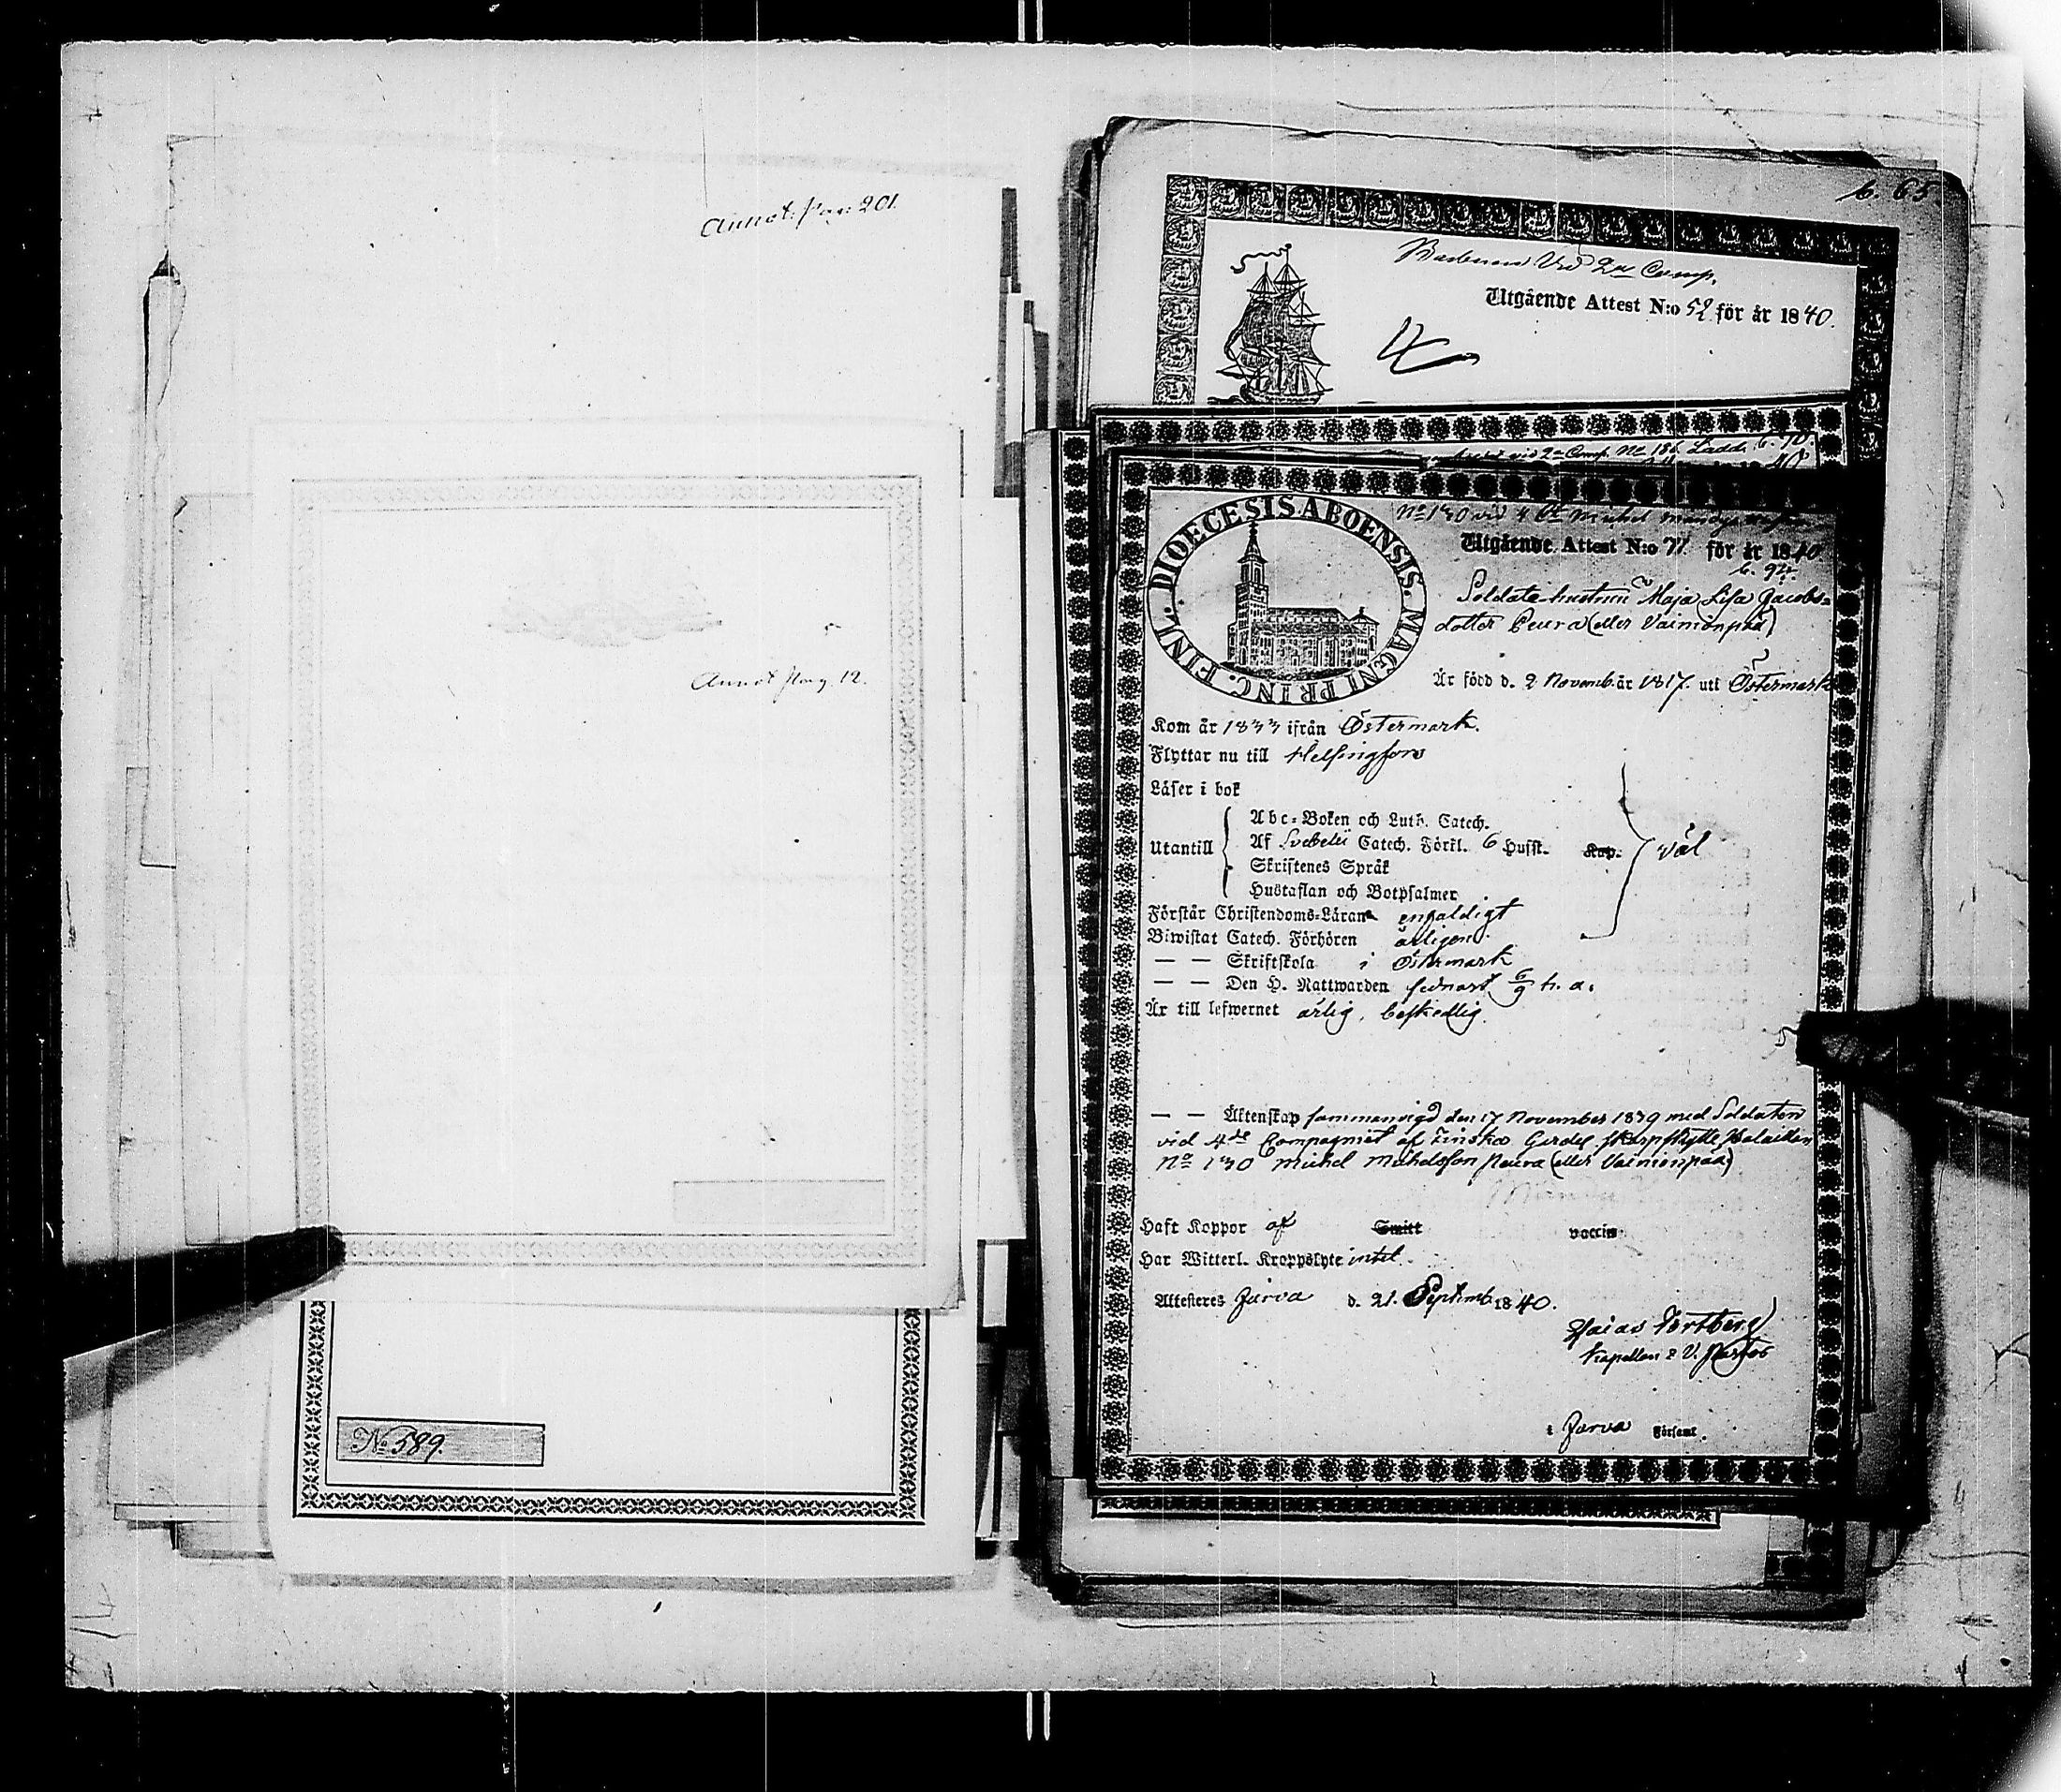 Annot: Pag: 201.
Annot Pag. 12.
No 589.
b. 65
Vid 2a Comp.
Utgående Attest N:o 52 för år 1840.
vid 2a Comp. No 186 Ladd. b. 70.
40
DIOECESIS ABOENSIS. MAGNI PRINC. FINL.
No 130 vid 4 Michel
Utgående Attest N:o 77 för år 1840
b. 94.
Soldats hustrun Maja Lisa Jacobs-
dotter Peura (eller Vainionpää)
Är född d. 2 Novemb. år 1817. uti Östermark
Kom år 1833 ifrån Östermark.
Flyttar nu till Helsingfors
Läser i bok
Abc-Boken och Luth. Catech.
Utantill Af Svebelii Catech. Förkl. 6 Hufst. Kap. väl
Skriftenes Språk
Hustaflan och Botpsalmer
Förstår Christendoms-Läran enfaldigt
Biwistat Catech. Förhören årligen.
— — Skriftskola i Östermark
— — Den H. Nattwarden sednast 6/9 h. a.
Är till lefwernet ärlig, beskedlig.
— — Äktenskap sammanvigd den 17 November 1839 med Soldaten
vid 4de Compagniet af Finska Gardes skarpskytte Bataillon
No 130 Michel Michelsson Peura (eller Vainionpää)
Haft Koppor af Smitt vaccin
Har Witterl. Kroppslyte intet.
Attesteres Jurva d. 21. Septemb. 1840.
Esaias Kapellan & V. Pastor
i Jurva Församl.